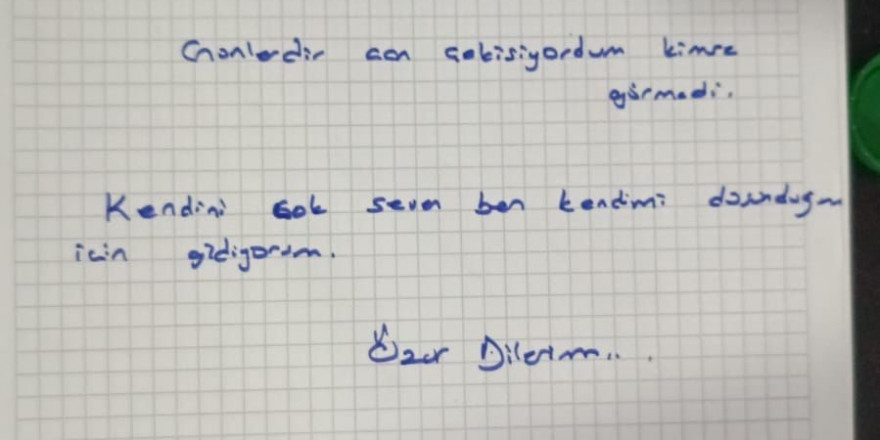 Günlerdir can çekisiyordum kimse
görmedi.
Kendini çok seven ben kendimi düşündügüm
için gidiyorum.
Özür Dilerim...